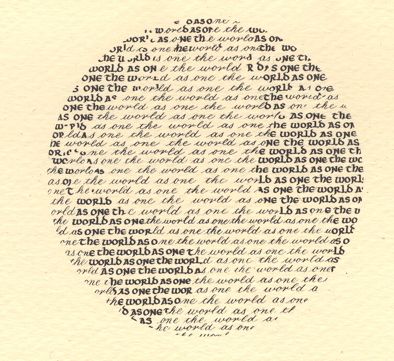 AS ONE
world AS ONE the w
WORLD AS ONE the world AS ON
world as one the world as one THE WO
THE WORLD is one the world as ONE TH
AS ONE THE world as one the world AS ONE
ONE THE WORLD as one the world AS ONE
AS ONE THE world as one the world AS ONE
WORLD AS one the world as one THE world as
ONE THE world as one the world as ON the
AS ONE the world as one the world AS ONE THE
WORLD as one the world as one the WORLD AS ON
world as one the world as one the WORLD AS ONE
the world as one the world as ONE THE WORLD AS
as one the world as one the WORLD AS ONE THE
world as one the world as one THE WORLD AS ONE THE WO
the world as one the world as ONE THE WORLD AS ONE
as one the world as one the WORLD AS ONE THE WO
one the world as one the world AS ONE THE WORLD A
the WORLD as one the world as ONE THE WORLD AS
orld AS ONE THE world as one the world AS ONE the
the WORLD AS ONE the world as one the world as ONE THE WO
ld AS ONE THE WORLD as one the world as one the WORLD
one THE WORLD AS ONE the world as one the world AS O
as ONE THE WORLD AS ONE THE world as one the world
the WORLD AS ONE THE WORLd as one the world as one
orld AS ONE THE WORLD AS one the world as one
the WORLD AS ONE the world as one the
orld AS ONE THE WORld as one the world a
the WORLD AS one the world as one
D AS ONE the world as one t
AS one the world as
he world as one